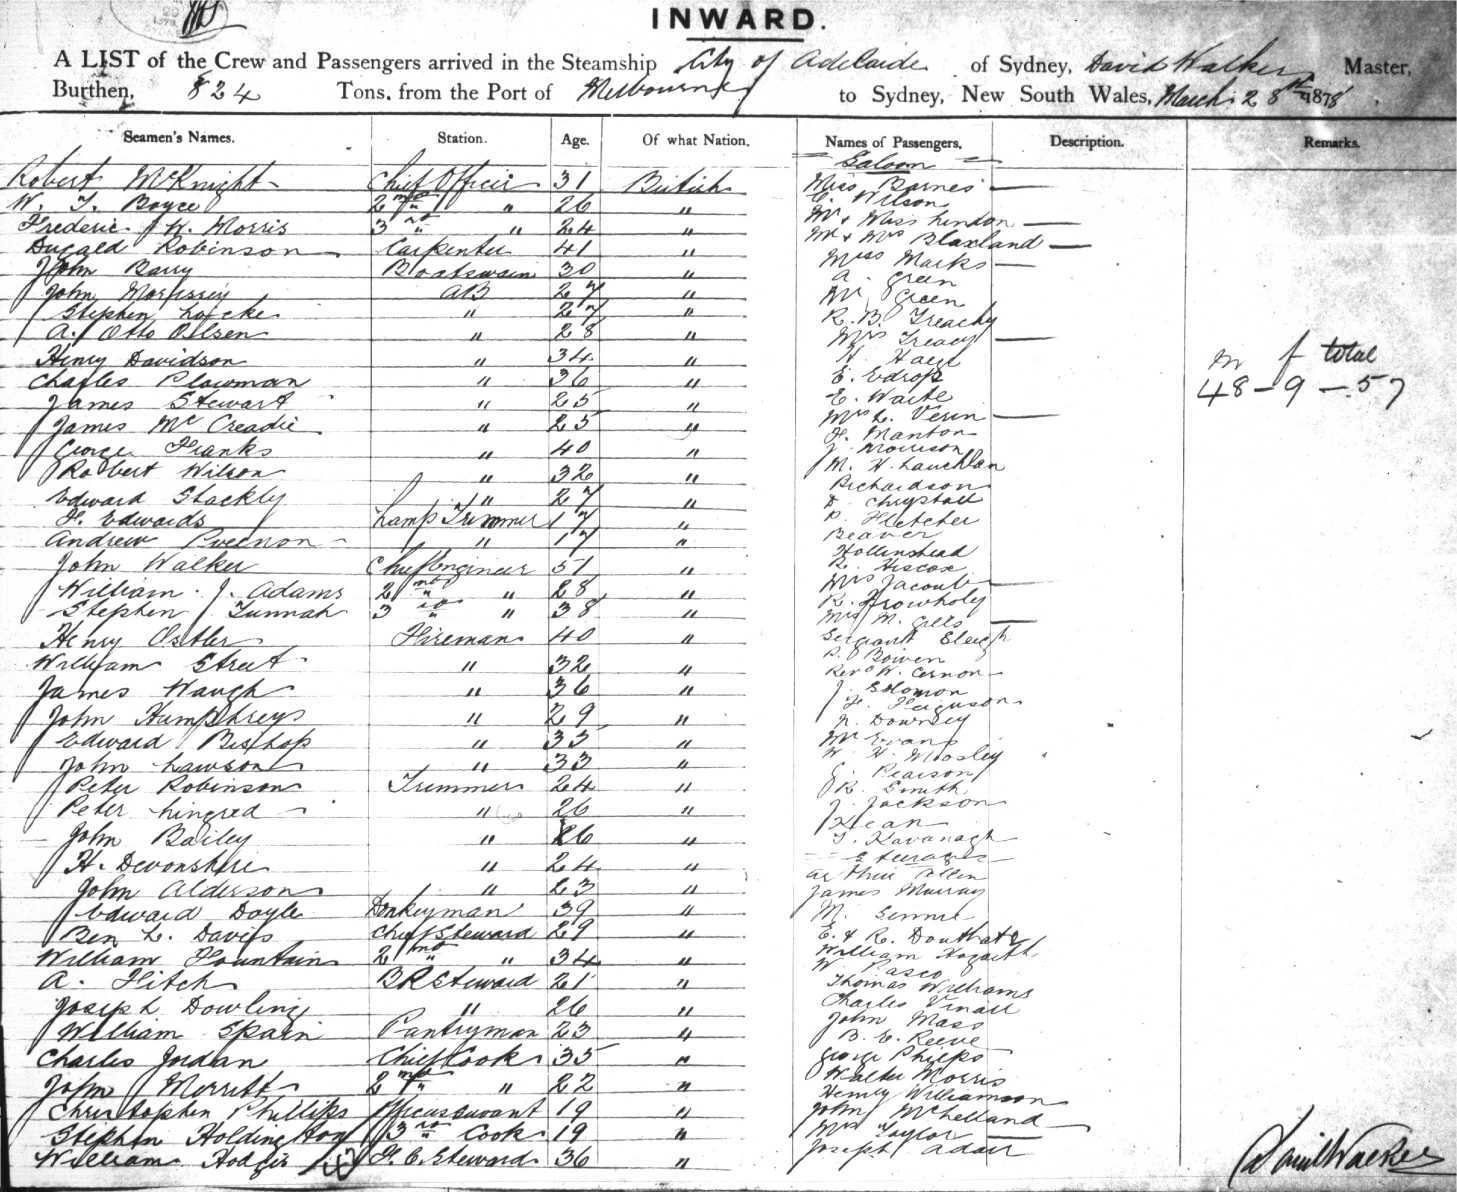 INWARD.
A LIST of the Crew and Passengers arrived in the Steamship City of Adelaide of Sydney, David Walker Master,
Burthen, 824 Tons, from the Port of Melbourne to Sydney, New South Wales, March 28th 1878.
Seamen's Names. Station. Age. Of what Nation. Names of Passengers. Description. Remarks.
Robert McKnight Chief Officer 31 British
W. J. Boyce 2nd " " 26 "
Frederic W. Morris 3rd " " 24 "
Dugald Robinson Carpenter 41 "
John Barry Boatswain 30 "
John Morrissey AB 27 "
Stephen Locke " 27 "
A. Otto Olsen " 28 "
Henry Davidson " 34 "
Charles Plowman " 36 "
James Stewart " 25 "
James McCreadie " 25 "
George Franks " 40 "
Robert Wilson " 32 "
Edward Stackly " 27 "
F. Edwards Lamp Trimmer 17 "
Andrew " 17 "
John Walker Chief Engineer 51 "
William J. Adams 2nd " " 28 "
Stephen Tunnah 3rd " " 38 "
Henry Ostler Fireman 40 "
William Street " 32 "
James Waugh " 36 "
John Humphreys " 29 "
Edward Bishop " 35 "
John Lawson " 33 "
Peter Robinson Trimmer 24 "
Peter Lingred " 26 "
John Bailey " 26 "
H. Devonshire " 24 "
John Alderson " 23 "
Edward Doyle Donkeyman 39 "
Ben L. Davis Chief Steward 29 "
William Fountain 2nd " " 34 "
A. Fitch B R Steward 21 "
Joseph Dowling " 26 "
William Spain Pantryman 23 "
Charles Jordan Chief Cook 35 "
John Merritt 2nd " " 22 "
Christopher Phillips Officers servant 19 "
Stephen Holdington 3rd " Cook 19 "
William Hodges F. C. Steward 36 "
Saloon
Miss Barnes
C. Wilson
Mr & Miss Lindon
Mr & Mrs Blaxland
Miss Marks
A. Green
Mr Green
R. B. Treachy
Mrs Treacy
H.
E. Edrop
E. Waite
Mrs L. Venn
F. Manton
J. Morrison
M. H. Lauchlan
Richardson
D Chrystall
P. Fletcher
Beaver
Hollinshead
R. Hiscox
Mrs Jacomb
R.
Mrs M. Gells
Sergeant Sleigh
R. Bowen
Revd W. Cernon
J. Solomon
F. Ferguson
N. Downey
Mr Evans
W. H. Moosley
J. Pearson
R. Smith
J. Jackson
Kean
T. Kavanagh
Steerage
Arthur Allen
James Murray
M.
E. & R. Douthat
William Hogarth
W Pasco
Thomas Williams
Charles Vinall
John Mass
B. E. Reeve
George Phelps
Walter Morris
Henry Williamson
John McLelland
Mrs Taylor
Joseph Adair
m f total
48 - 9 - 57
David Walker